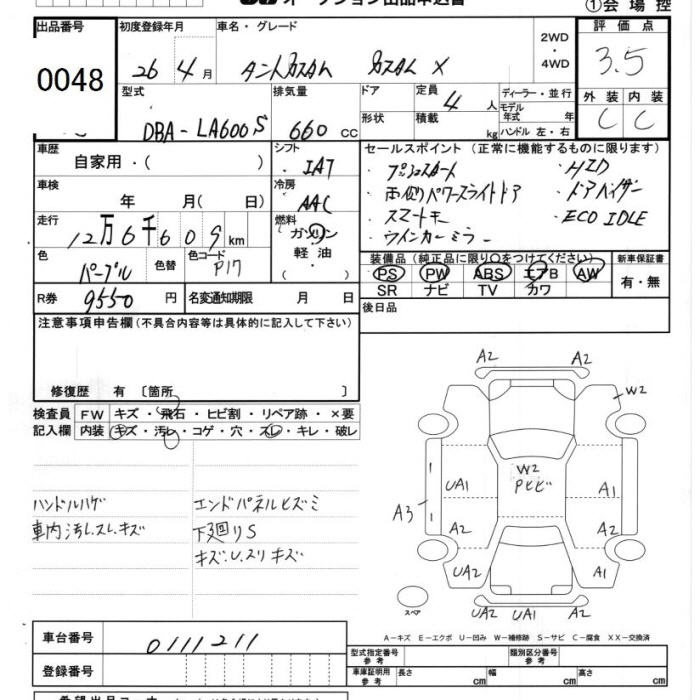 オークション出品申込書
①会場控
出品番号
0048
初度登録年月
26 4月
車名・グレード
タントカスタム カスタム X
2WD
・
4WD
評価点
3.5
外装 内装
C C
型式
DBA-LA600S
排気量
660 CC
ドア
形状
定員
4 人
積載 kg
ディーラー・並行
モデル年式 年
ハンドル 左・右
車歴
自家用・( )
シフト
IAT
冷房
AAC
車検
年 月( 日)
走行
12万6千609km
燃料
ガソリン
軽油
・( )
色
パープル
色替
色コード
P17
R券
9550 円
名変通知期限 月 日
セールスポイント(正常に機能するものに限ります)
・プッシュスタート ・HID
・両側パワースライドドア ・ドアバイザー
・スマートキー ・ECO IDLE
・ウインカーミラー
装備品(純正品に限り○をつけてください)
PS PW ABS エアB AW
SR ナビ TV カワ
新車保証書
有・無
後日品
注意事項申告欄(不具合内容等は具体的に記入して下さい)
修復歴 有〔箇所 〕
検査員記入欄
FW キズ・飛石・ヒビ割・リペア跡・×要
内装 キズ・汚レ・コゲ・穴・スレ・キレ・破レ
ハンドルハゲ
車内汚レ、スレ、キズ
エンドパネルヒズミ
下廻りS
キズ、U、スリキズ
A2 A2
W2
W2
Pヒビ
UA1 A1
A3
A2 A2
UA2 A1
スペア
UA2 UA1 A2
A-キズ E-エクボ U-凹み W-補修跡 S-サビ C-腐食 XX-交換済
車台番号
0111211
登録番号
型式指定番号 参考
類別区分番号 参考
車庫証明用 参考
長さ cm 幅 cm 高さ cm